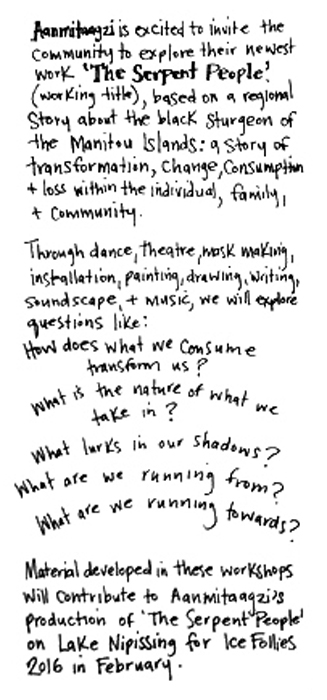 Aanmitaagzi is excited to invite the
community to explore their newest
work 'The Serpent People'
(working title), based on a regional
Story about the black Sturgeon of
the Manitou Islands: a Story of
transformation, Change, Consumption
+ loss within the individual, family,
+ Community.
Through dance, theatre, mask making,
installation, painting, drawing, writing,
soundscape, + music, we will explore
questions like:
How does what we consume
transform us?
What is the nature of what we
take in?
What lurks in our shadows?
What are we running from?
What are we running towards?
Material developed in these workshops
will contribute to Aanmitaagzi's
production of 'The Serpent People'
on Lake Nipissing for Ice Follies
2016 in February.